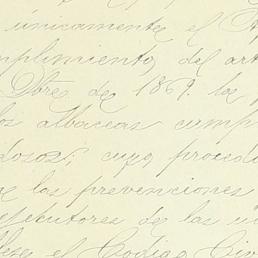 únicamente el
mplimiento, del art
Obre de 1869. los
los albaceas cump
dosos; cuyo procedi
ue las prevenciones
jecutores de las úl
el Codigo Civ